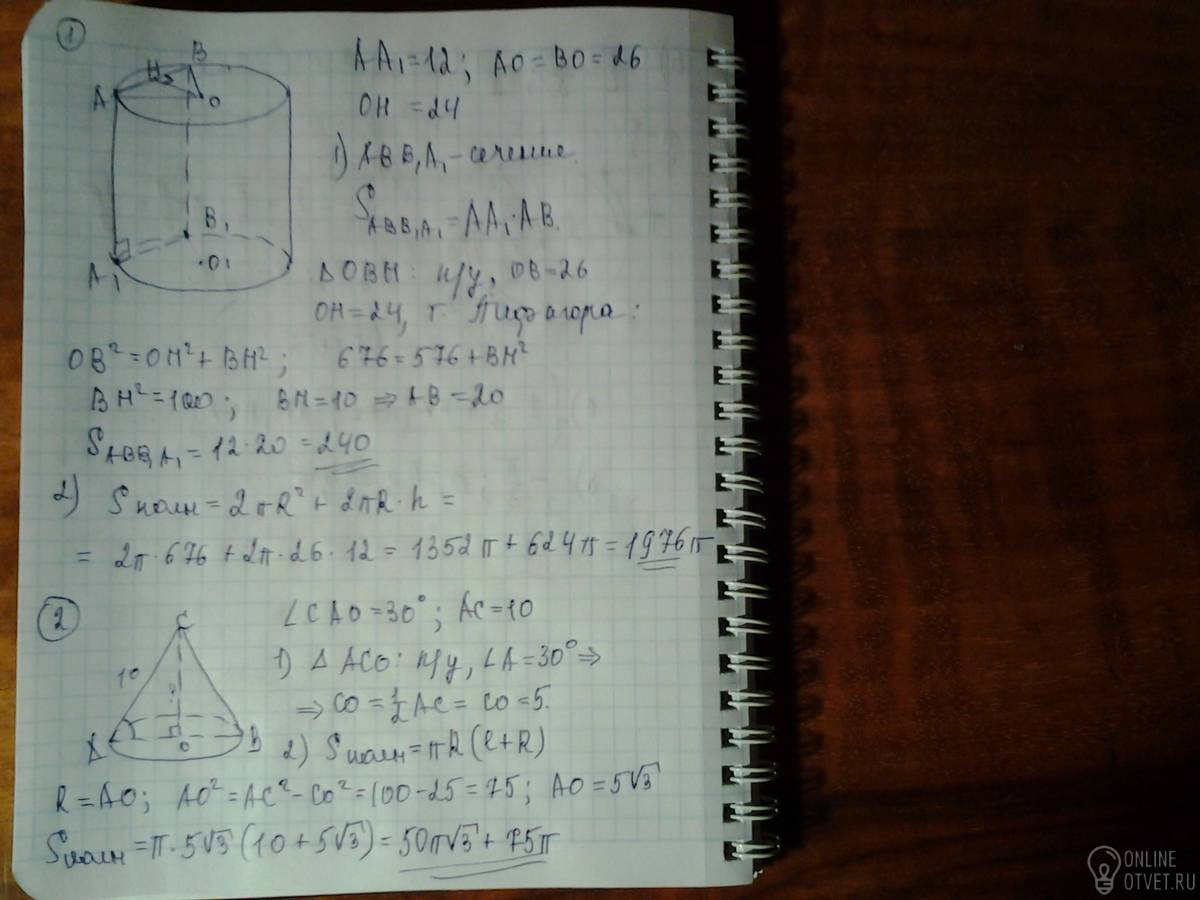 1
B
H
A
O
B₁
A₁
O₁
AA₁ = 12; AO = BO = 26
OH = 24
1) ABB₁A₁ - сечение.
S ABB₁A₁ = AA₁·AB.
Δ OBH: п/у, OB = 26
OH = 24, т. Пифагора:
OB² = OH² + BH²; 676 = 576 + BH²
BH² = 100; BH = 10 ⇒ AB = 20
S ABB₁A₁ = 12·20 = 240
2) S полн = 2πR² + 2πR·h =
= 2π·676 + 2π·26·12 = 1352π + 624π = 1976π
2
C
10
?
A
O
B
∠CAO = 30°; AC = 10
1) Δ ACO: п/у, ∠A = 30° ⇒
⇒ CO = ½AC = CO = 5.
2) S полн = πR(ℓ+R)
R = AO; AO² = AC² - CO² = 100 - 25 = 75; AO = 5√3
S полн = π·5√3(10 + 5√3) = 50π√3 + 75π
ONLINE
OTVET.RU